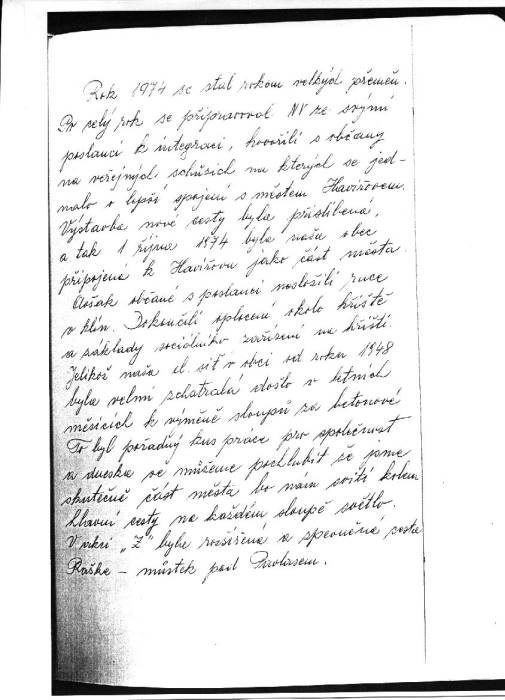 Rok 1974 se stal rokem velkých přeměn.
Po celý rok se připravoval NV ze svými
poslanci k integraci, hovořili s občany
na veřejných schůzích na kterých se jed-
nalo o lepší spojení s městem Havířovem.
Výstavba nové cesty byla přislíbená,
a tak 1 října 1974 byla naše obec
připojena k Havířovu jako část města
Avšak občané s poslanci nesložili ruce
v klín. Dokončili oplocení okolo hřiště
a základy sociálního zařízení na hřišti.
Jelikož naša el. síť v obci od roku 1948
byla velmi zchatralá došlo v letních
měsících k výměně sloupů za betonové
To byl pořadný kus prace pro společnost
a dneska se můžeme pochlubit že jsme
skutečně část města bo nam svítí kolem
hlavní cesty na každém sloupě světlo.
V akci „Z" byla rozšířená a zpevněná cesta
Raška – můstek pod Pavlasem.